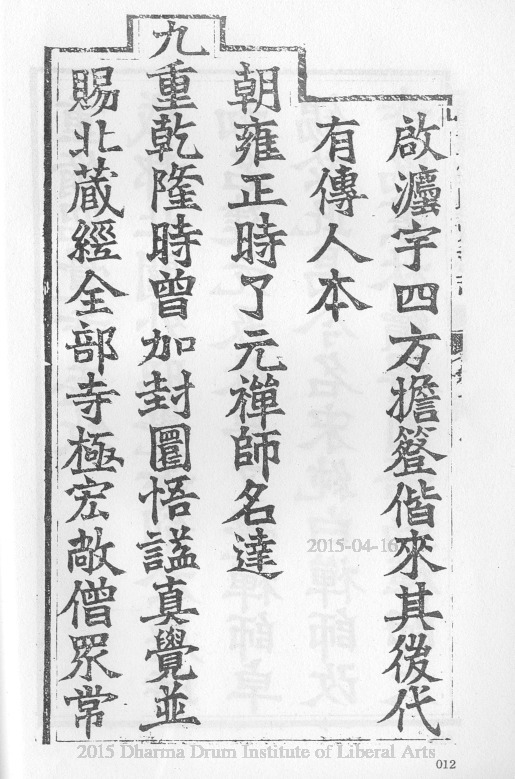 啟瀍宇四方擔簦偕來其後代
有傳人本
朝雍正時了元禪師名達
九重乾隆時曾加封圜悟謚真覺並
賜北藏經全部寺極宏敞僧眾常
2015-04-16
2015 Dharma Drum Institute of Liberal Arts
012